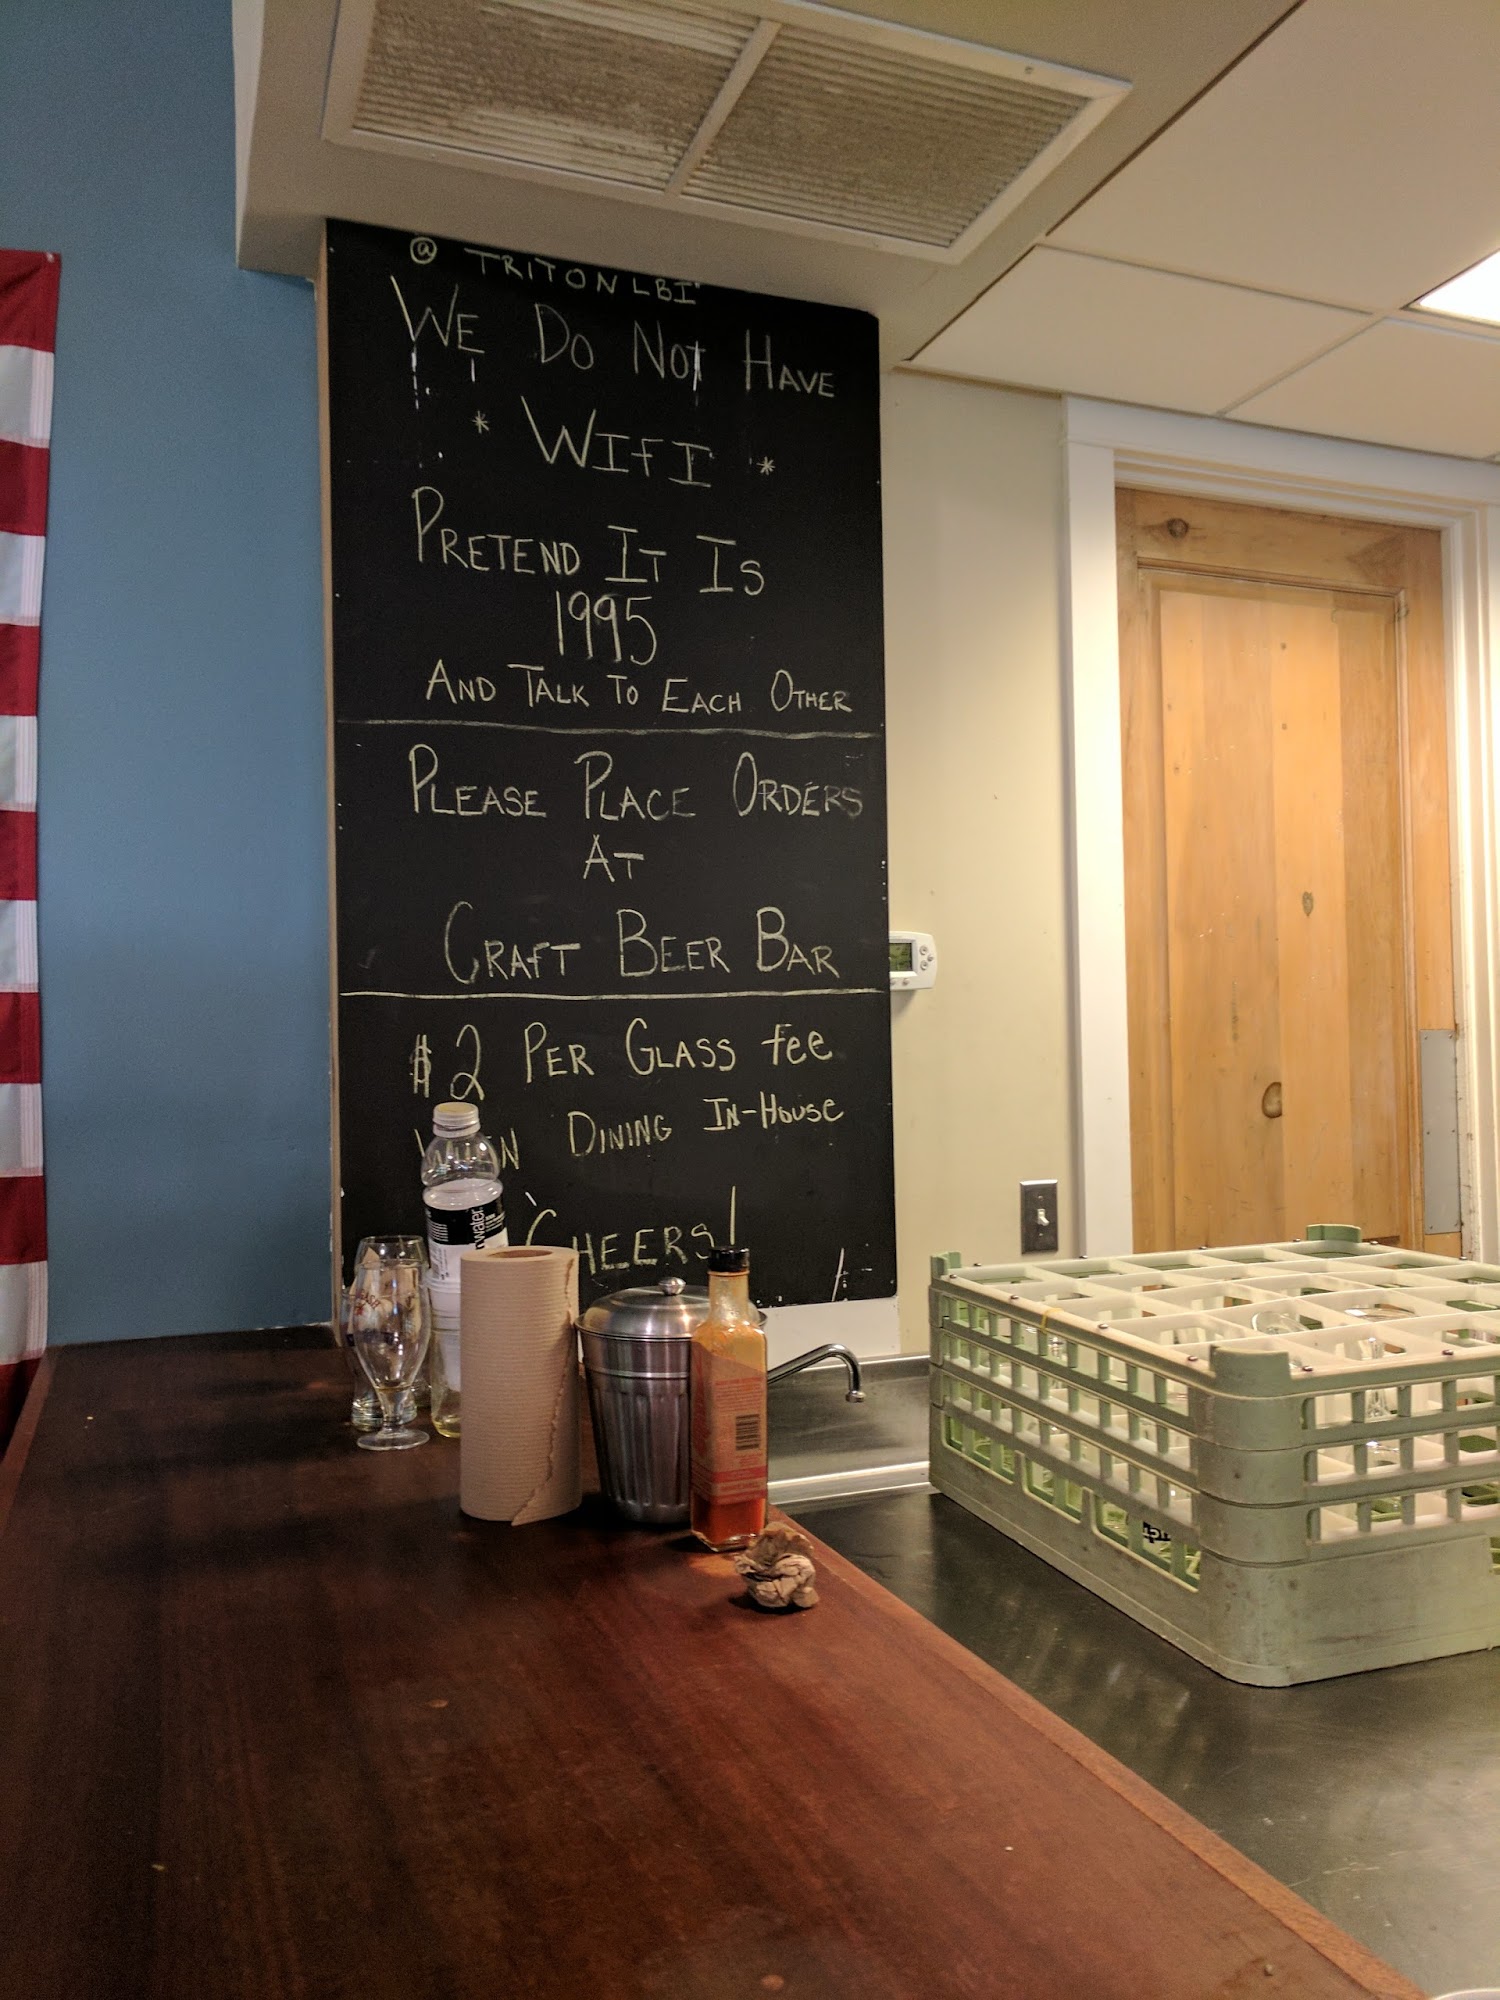 @ TRITONLBI"
WE DO NOT HAVE
* WIFI *
PRETEND IT IS
1995
AND TALK TO EACH OTHER
PLEASE PLACE ORDERS
AT
CRAFT BEER BAR
$2 PER GLASS fee
DINING IN-HOUSE
CHEERS!
water